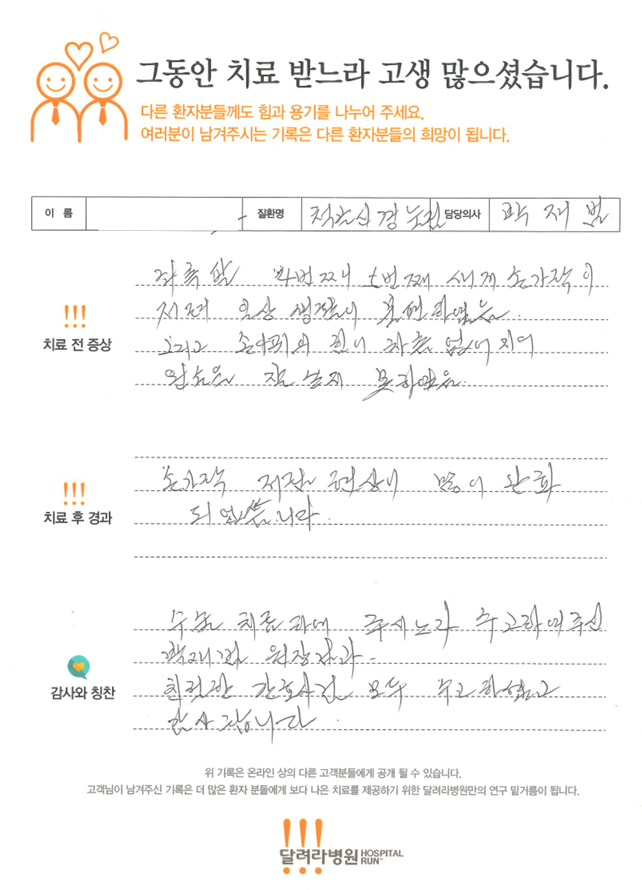 그동안 치료 받느라 고생 많으셨습니다.
다른 환자분들께도 힘과 용기를 나누어 주세요.
여러분이 남겨주시는 기록은 다른 환자분들의 희망이 됩니다.
이 름 질환명 척골신경 담당의사 박 재 범
!!!
치료 전 증상
좌측 팔 4번째 5번째 새개 손가락이
저려 일상 생활이 불편하였음.
그리고 손 힘이 자츰 없어지며
왼손을 잘 쓰지 못하였음.
!!!
치료 후 경과
손가락 저린 현상이 많이 완화
되었습니다.
감사와 칭찬
수술 치료 하여 주시느라 수고하여주신
박재범 원장님과
친절한 간호사님 모두 수고하셨고
감사합니다.
위 기록은 온라인 상의 다른 고객분들에게 공개 될 수 있습니다.
고객님이 남겨주신 기록은 더 많은 환자 분들에게 보다 나은 치료를 제공하기 위한 달려라병원만의 연구 밑거름이 됩니다.
!!!
달려라병원 HOSPITAL RUN